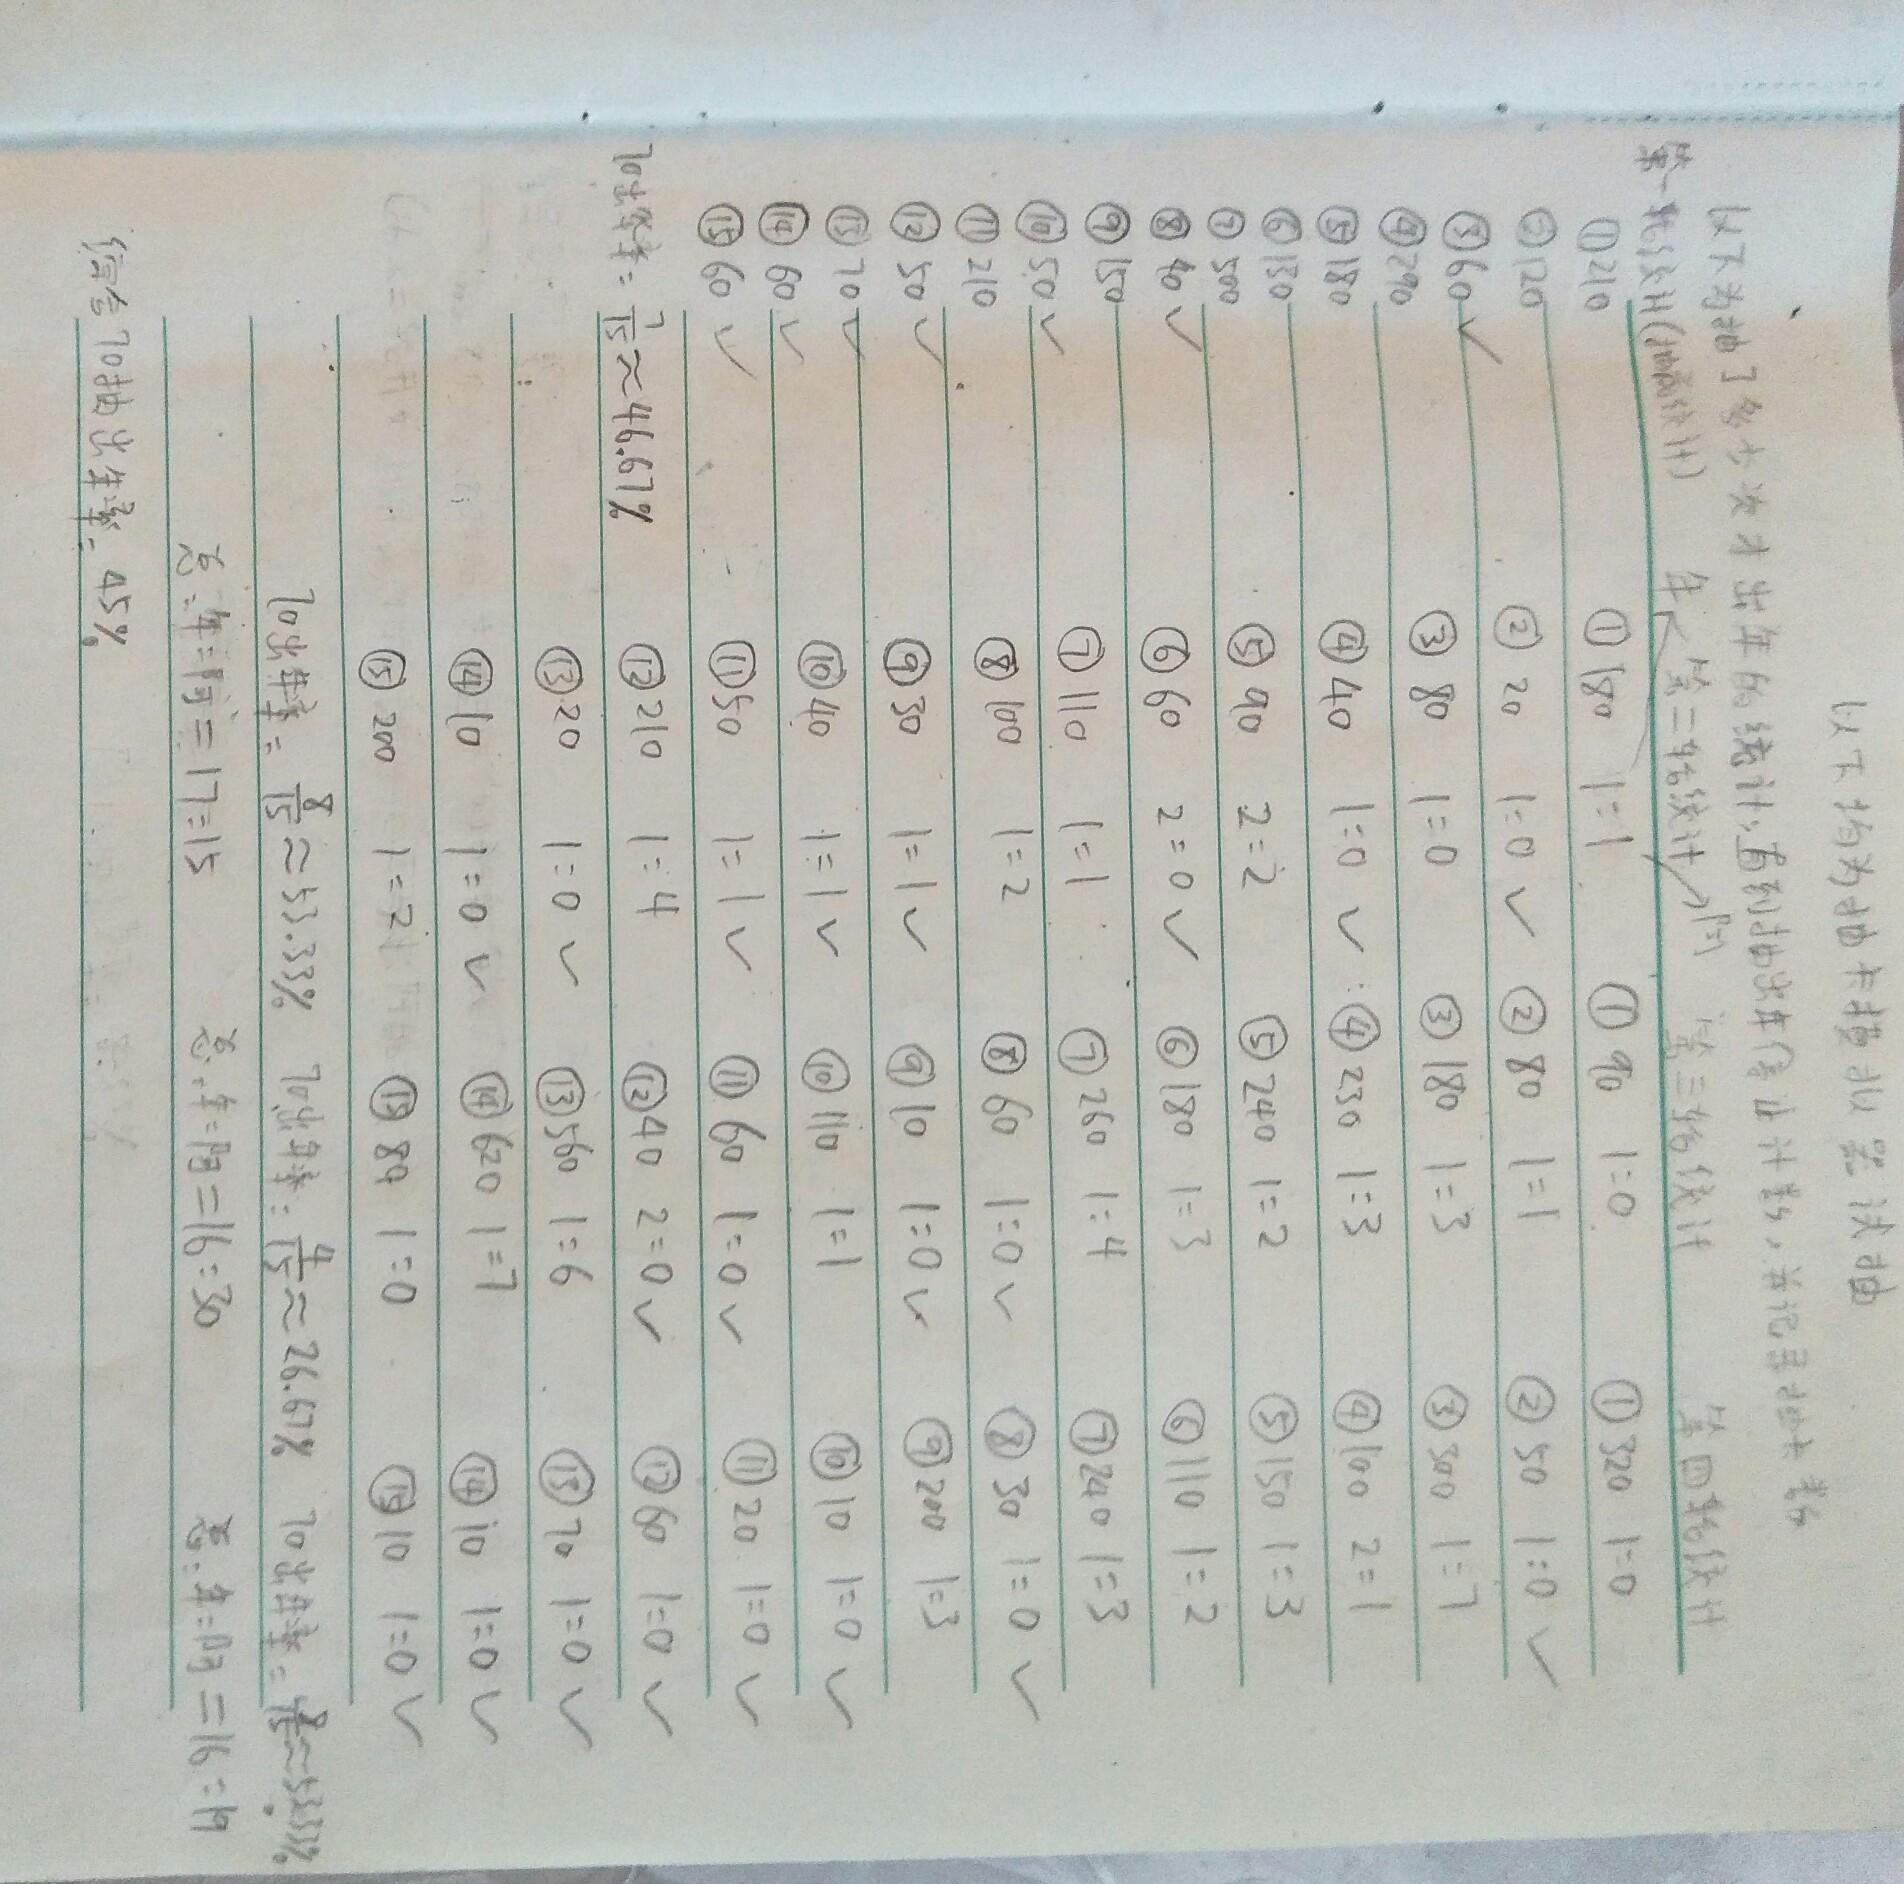 以下均为抽卡模拟器试抽
以下为抽了多少次才出年的统计,直到抽出年停止计数,并记录抽卡数
第一轮统计(抽前统计) 年←第二轮统计→阿 第三轮统计 第四轮统计
①210 ①180 1:1 ①90 1:0 ①320 1:0
②120 ②20 1:0 ✓ ②80 1:1 ②50 1:0 ✓
③60 ✓ ③80 1:0 ③180 1:3 ③500 1:7
④290 ④40 1:0 ✓ ④230 1:3 ④100 2:1
⑤180 ⑤90 2:2 ⑤240 1:2 ⑤150 1:3
⑥130 ⑥60 2:0 ✓ ⑥180 1:3 ⑥110 1:2
⑦500 ⑦110 1:1 ⑦260 1:4 ⑦240 1:3
⑧40 ✓ ⑧100 1:2 ⑧60 1:0 ✓ ⑧30 1:0 ✓
⑨150 ⑨30 1:1 ✓ ⑨10 1:0 ✓ ⑨200 1:3
⑩50 ✓ ⑩40 1:1 ✓ ⑩110 1:1 ⑩10 1:0 ✓
⑪210 ⑪50 1:1 ✓ ⑪60 1:0 ✓ ⑪20 1:0 ✓
⑫50 ✓ ⑫210 1:4 ⑫40 2:0 ✓ ⑫60 1:0 ✓
⑬70 ✓ ⑬20 1:0 ✓ ⑬560 1:6 ⑬70 1:0 ✓
⑭60 ✓ ⑭10 1:0 ✓ ⑭620 1:7 ⑭10 1:0 ✓
⑮60 ✓ ⑮200 1:2 ⑮80 1:0 ⑮10 1:0 ✓
70出年率:7/15≈46.67% 70出年率:8/15≈53.33% 70出年率:4/15≈26.67% 70出年率:8/15≈53.33%
总:年:阿=17:15 总:年:阿=16:30 总:年:阿=16:19
综合70抽出年率:45%